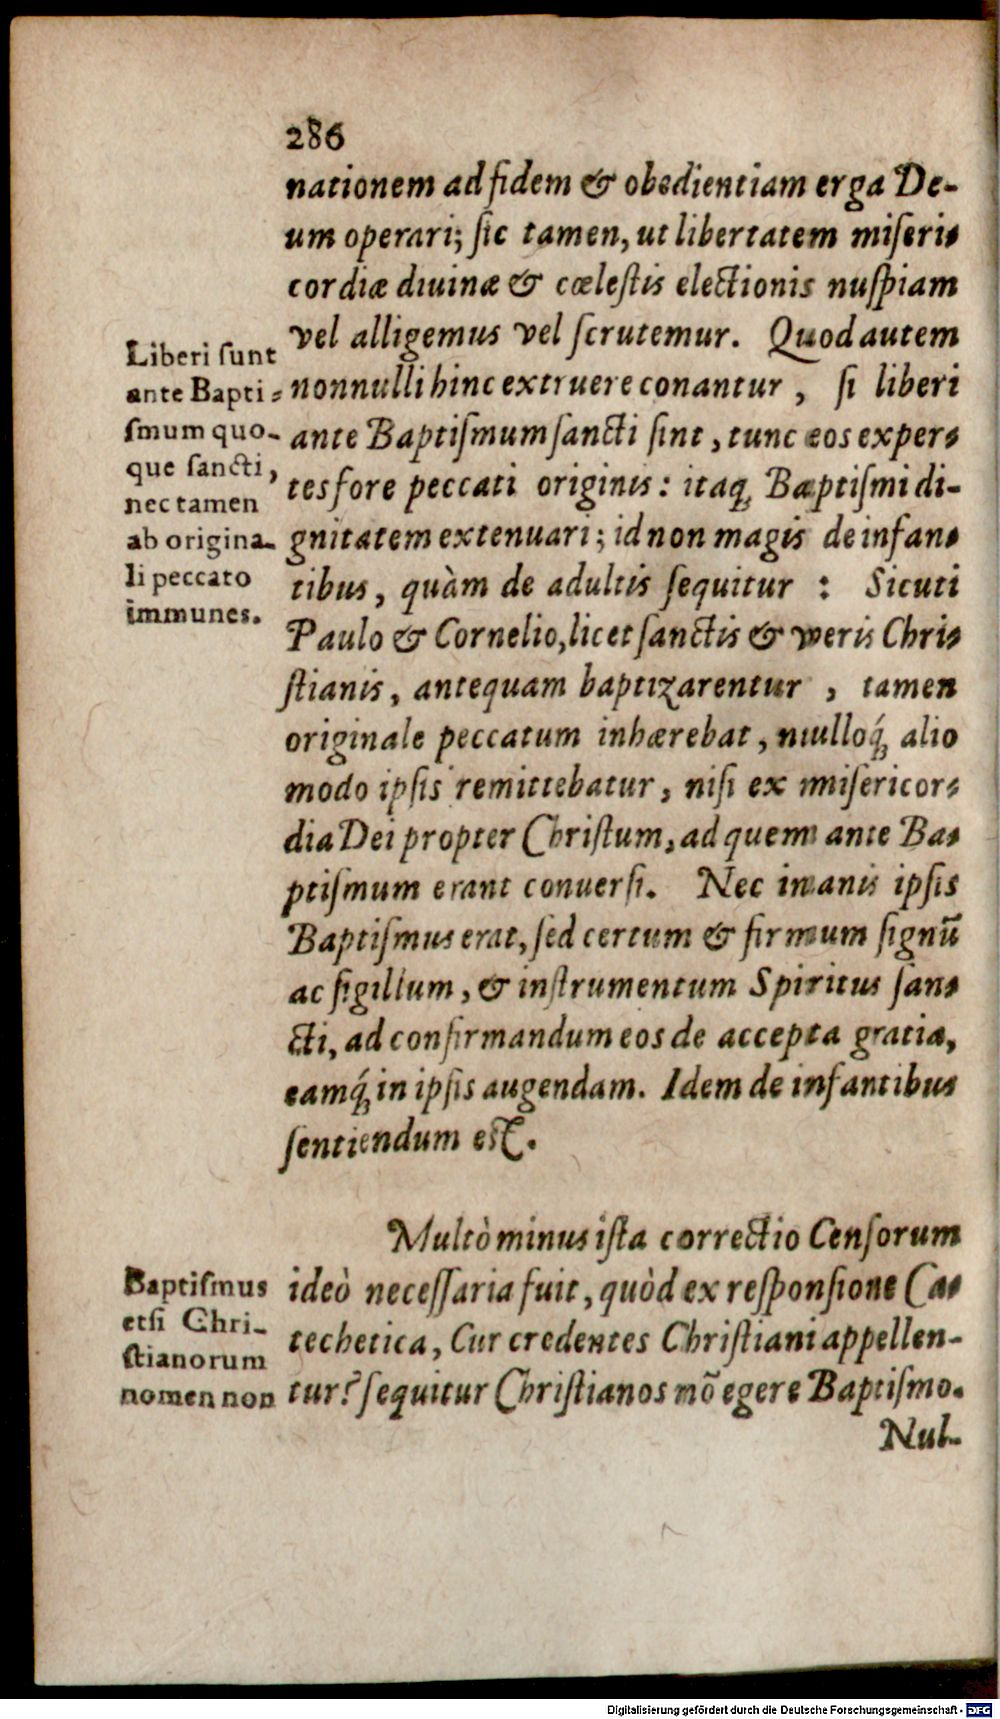 286
nationem ad fidem & obedientiam erga De-
um operari; ſic tamen, ut libertatem miſeri-
cordiæ diuinæ & cœleſtis electionis nuſpiam
vel alligemus vel ſcrutemur. Quod autem
nonnulli hinc extruere conantur, ſi liberi
ante Baptiſmum ſancti ſint, tunc eos exper-
tes fore peccati originis: itaq; Baptiſmi di-
gnitatem extenuari; id non magis de infan-
tibus, quàm de adultis ſequitur: Sicuti
Paulo & Cornelio, licet ſanctis & veris Chri-
ſtianis, antequam baptizarentur, tamen
originale peccatum inhærebat, nulloq́; alio
modo ipſis remittebatur, niſi ex miſericor-
dia Dei propter Chriſtum, ad quem ante Ba-
ptiſmum erant conuerſi. Nec inanis ipſis
Baptiſmus erat, ſed certum & firmum ſignũ
ac ſigillum, & inſtrumentum Spiritus ſan-
cti, ad confirmandum eos de accepta gratia,
eamq́; in ipſis augendam. Idem de infantibus
ſentiendum eſt.
Liberi ſunt
ante Bapti-
ſmum quo-
que ſancti,
nec tamen
ab origina-
li peccato
immunes.
Multò minus iſta correctio Cenſorum
ideò neceſſaria fuit, quòd ex reſponſione Ca-
techetica, Cur credentes Chriſtiani appellen-
tur? ſequitur Chriſtianos nõ egere Baptiſmo.
Nul-
Baptiſmus
etſi Chri-
ſtianorum
nomen non
Digitalisierung gefördert durch die Deutsche Forschungsgemeinschaft - DFG